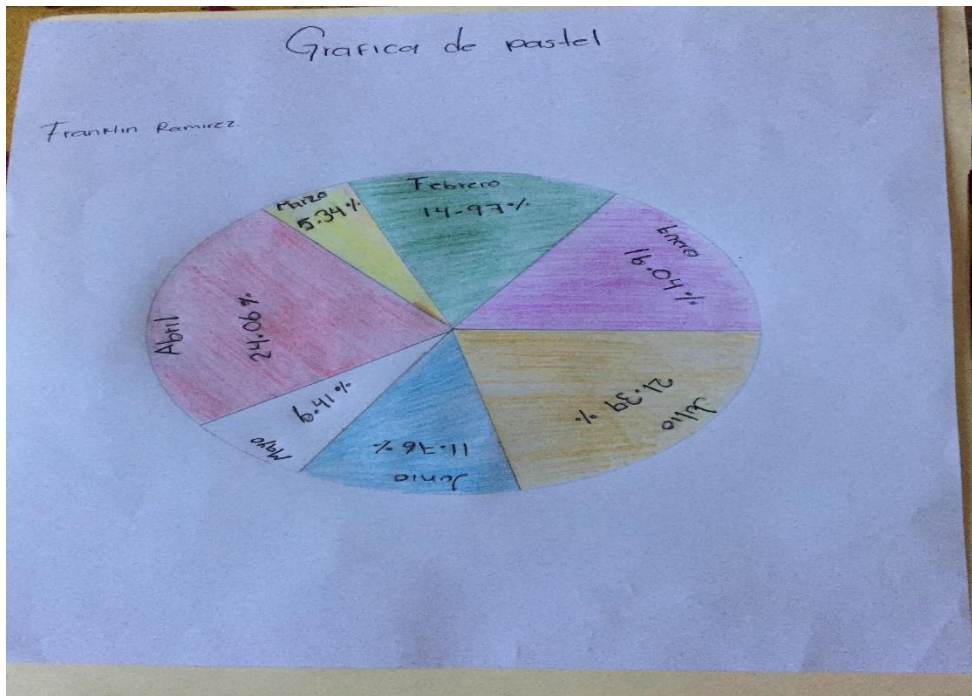 Grafica de pastel
Franklin Ramirez
Marzo
5.34%
Febrero
14.97%
Enero
16.04%
Abril
24.06%
Mayo
6.41%
Junio
11.76%
Julio
21.39%